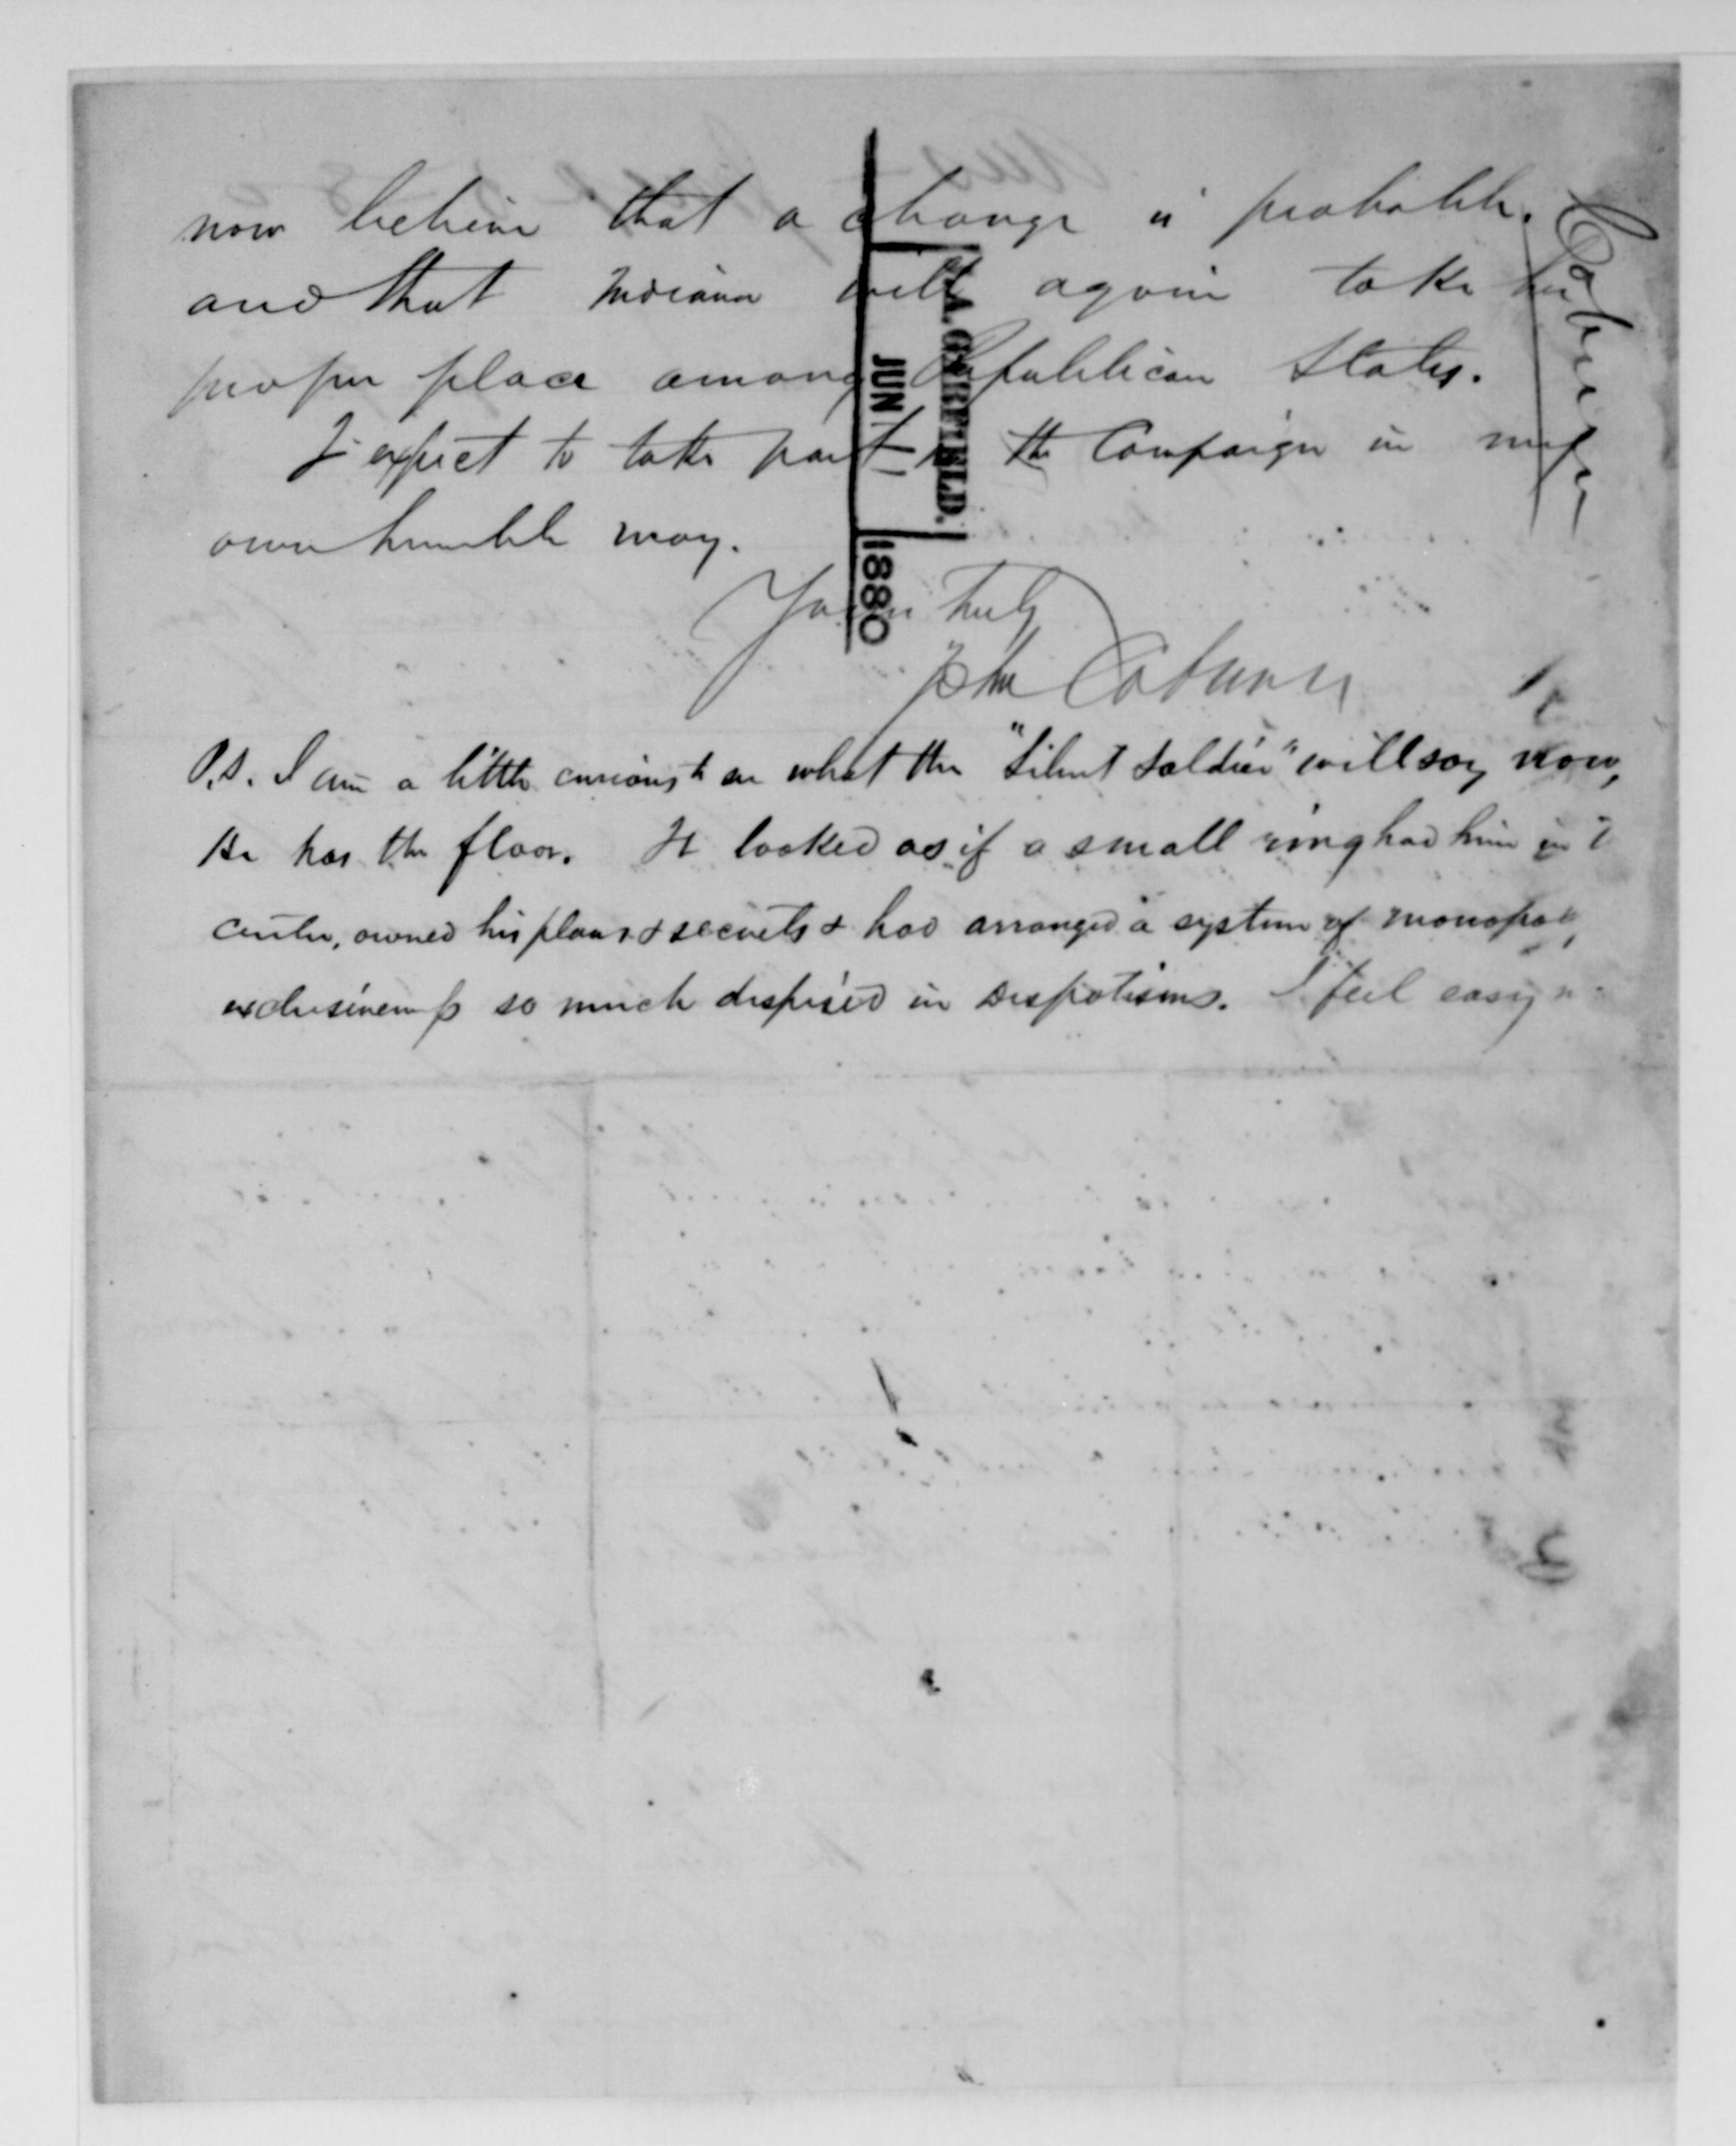 now believe that a change is probable.
and that Indiana will again take her
proper place among Republican States.
I expect to take part in the Campaign in my
own humble way.
Yours truly
John Coburn
P.S. I am a little curious to see what the "Silent Soldier" will say now,
He has the floor. It looked as if a small ring had him in
center, owned his plans & secrets & had arranged a system of monopoly
exclusiveness so much despised in Despotisms. I feel easy
J. A. GARFIELD.
JUN 11 1880
Coburn